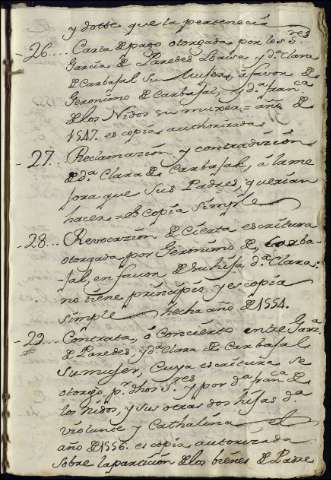 y dotte que la pertenecia
26... Carta de pago otorgada por los S.res
Garcia de Paredes Loaisa y d.a Clara
de Carbajal su muger, a favor de
Geronimo de Carbajal, y d.a Fran.ca
de los Nidos su muxer = año de
1547. es copia authorizada
27. Reclamazion y contradizion
de d.a Clara de Carbajal, á la me
jora que sus Padres, querian
hacer = es copia simple
28. Revocazion de Cierta escritura
otorgada por Geronimo de Carba-
jal, en favor de su hija d.a Clara:
no tiene principio y es copia
simple hecha año de 1554.
29 Contrata, ó Concierto entre Gar.a
de Paredes, y d.a Clara de Carbajal
su muger, Cuya escritura se
otorgó p.r dhos S.res y por d.a Fran.ca de
los Nidos, y sus otras dos hijas d.a
Violante y Cathalina el
año de 1556. es copia autorizada
sobre la particion de los bienes de Padre